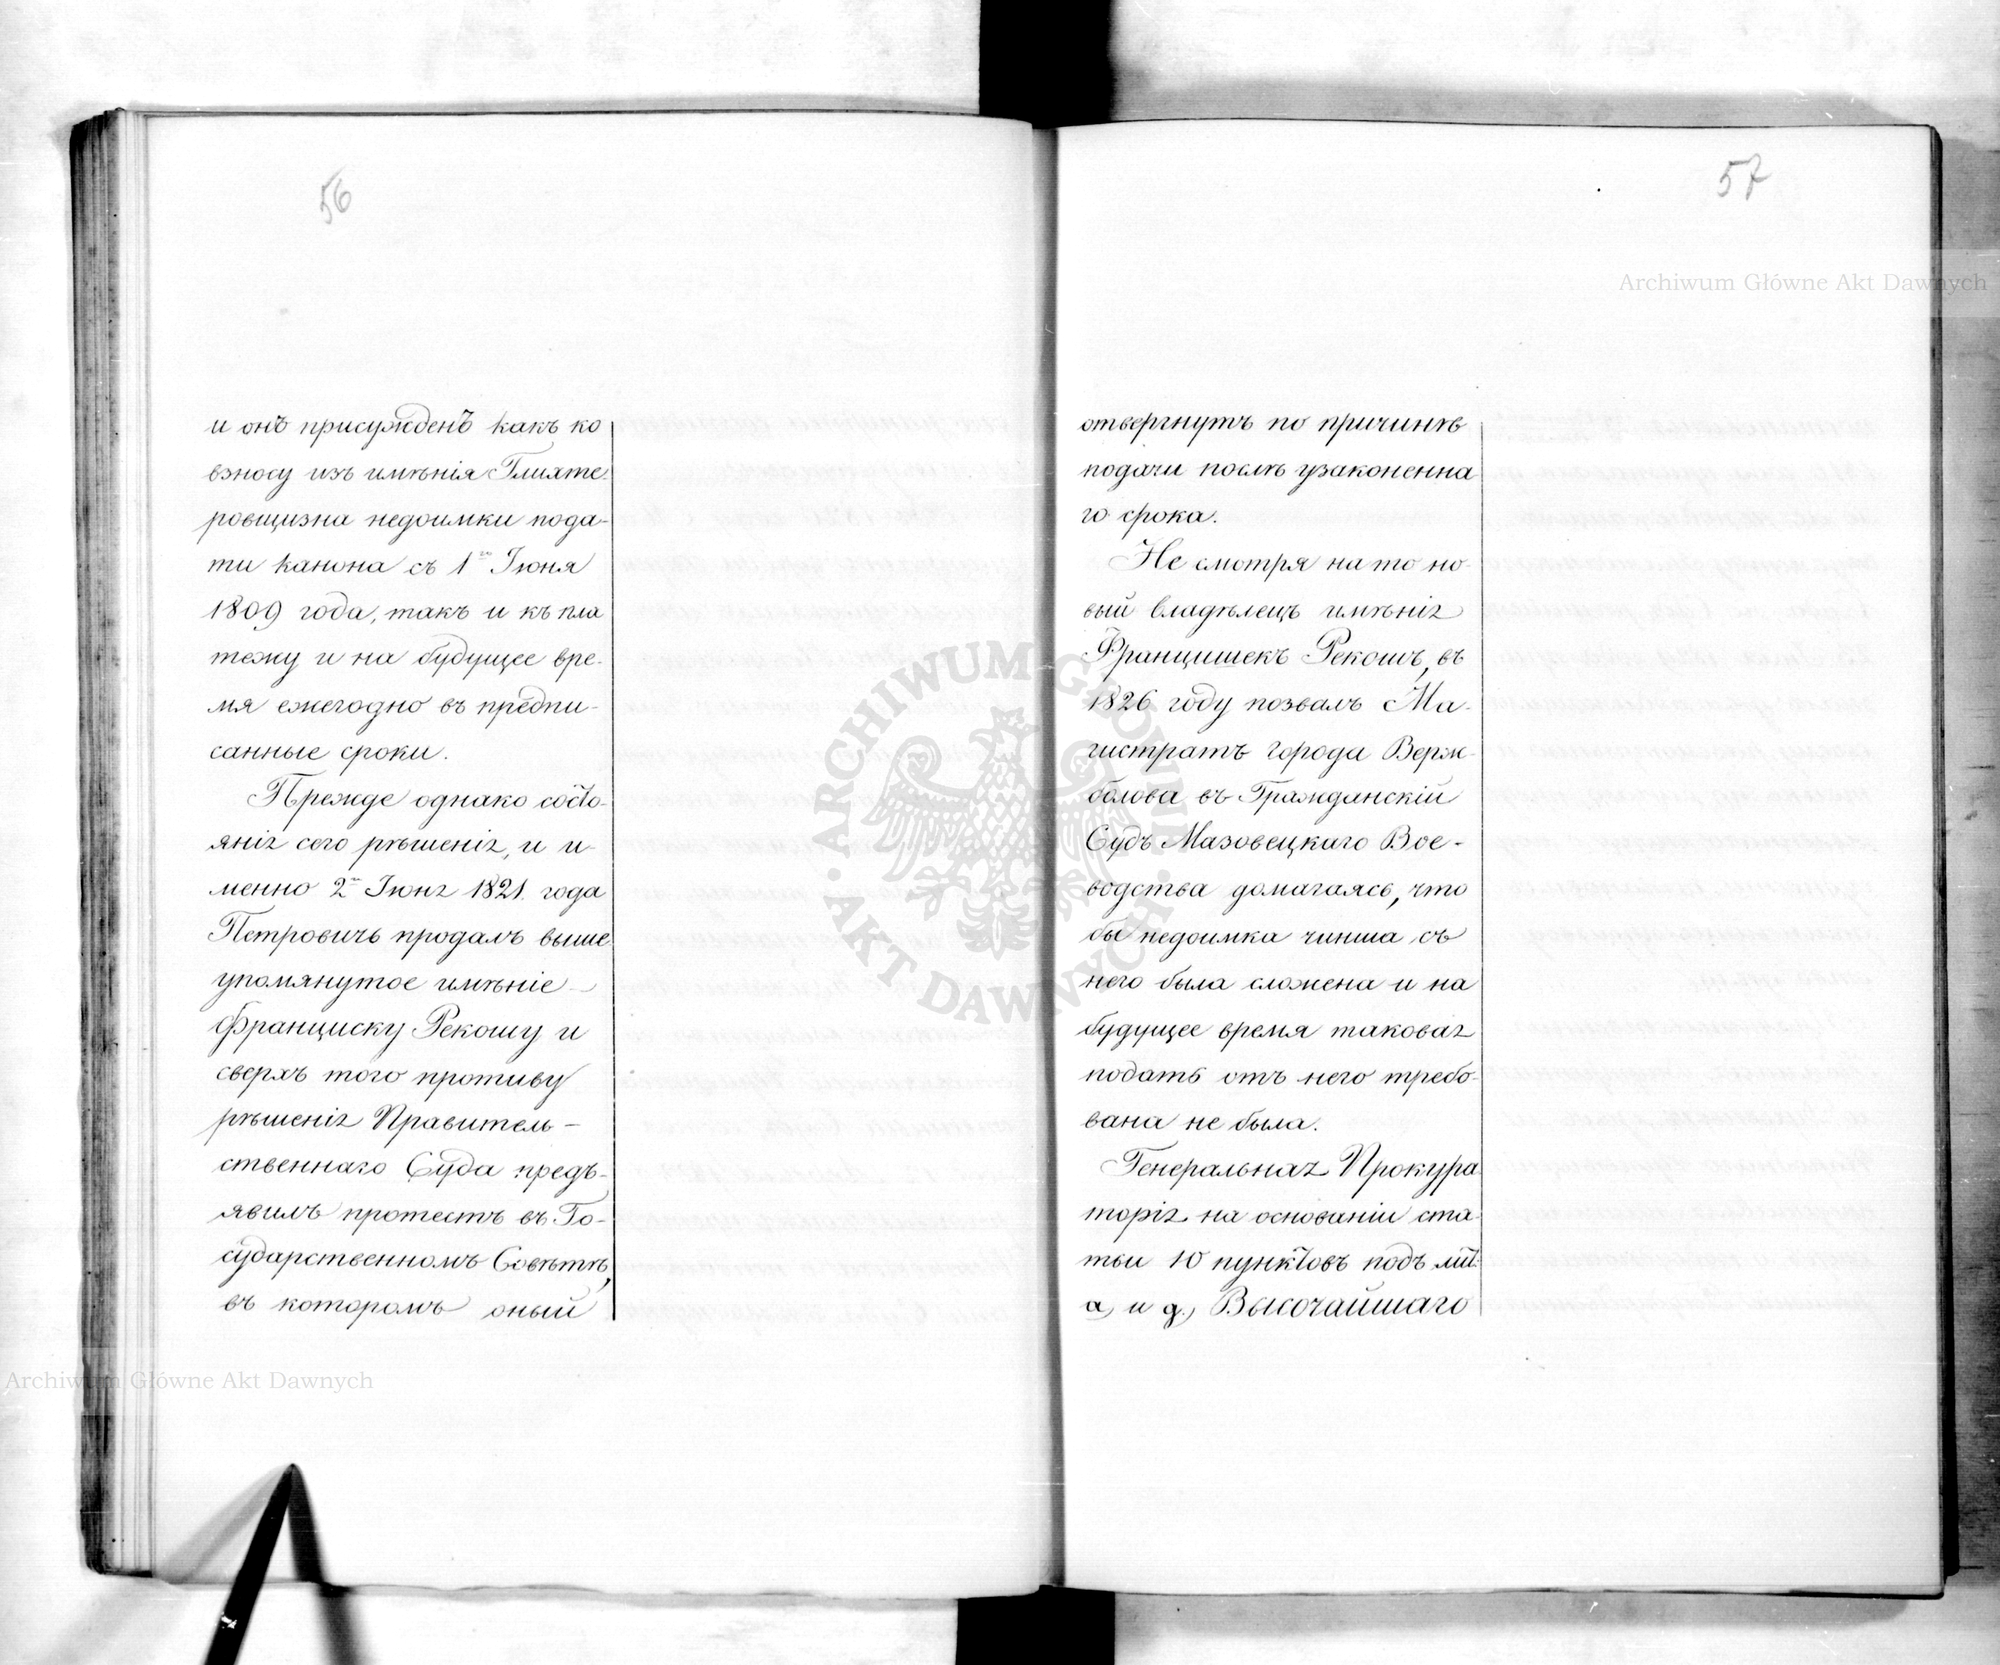 56
и онъ присужденъ какъ ко
взносу изъ имѣнія Глияте
ровщизна недоимки пода-
ти канона съ 1го Іюня
1809 года, такъ и къ пла
тежу и на будущее вре-
мя ежегодно въ предпи-
санные сроки.
Прежде однако состо-
янія сего рѣшенія, и и-
менно 2го Іюня 1821. года
Петровичъ продалъ выше
упомянутое имѣніе
Франциску Рекошу и
сверхъ того противу
рѣшенія Правитель-
ственнаго Суда предъ-
явилъ протестъ въ Го-
сударственномъ Совѣтѣ,
въ которомъ оный
57
отвергнутъ по причинѣ
подачи послѣ узаконенна
го срока.
Не смотря на то но-
вый владѣлецъ имѣнія
Францишекъ Рекошъ, въ
1826 году позвалъ Ма-
гистратъ города Верж-
болова въ Гражданскій
Судъ Мазовецкаго Вое-
водства домагаясь, что
бы недоимка чинша съ
него была сложена и на
будущее время таковая
подать отъ него требо-
вана не была.
Генеральная Прокура
торія на основаніи ста-
тьи 10 пунктовъ подъ лит.
а, и д, Высочайшаго
Archiwum Główne Akt Dawnych
Archiwum Główne Akt Dawnych
ARCHIWUM GŁÓWNE AKT DAWNYCH